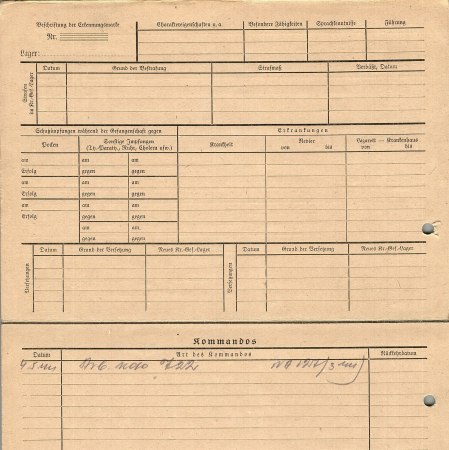 Beschriftung der Erkennungsmarke
Nr.
Lager:
Charaktereigenschaften u. a.
Besondere Fähigkeiten
Sprachkenntnisse
Führung
Strafen im Kr.-Gef.-Lager
Datum
Grund der Bestrafung
Strafmaß
Verbüßt, Datum
Schutzimpfungen während der Gefangenschaft gegen
Erkrankungen
Pocken
Sonstige Impfungen
(Ty.-Paraty., Ruhr, Cholera usw.)
Krankheit
Revier
von bis
Lazarett — Krankenhaus
von bis
am am am
Erfolg gegen gegen
am am am
Erfolg gegen gegen
am am am
Erfolg gegen gegen
am. am.
gegen gegen
Versetzungen
Datum
Grund der Versetzung
Neues Kr.-Gef.-Lager
Versetzungen
Datum
Grund der Versetzung
Neues Kr.-Gef.-Lager
Kommandos
Datum
Art des Kommandos
Rückkehrdatum